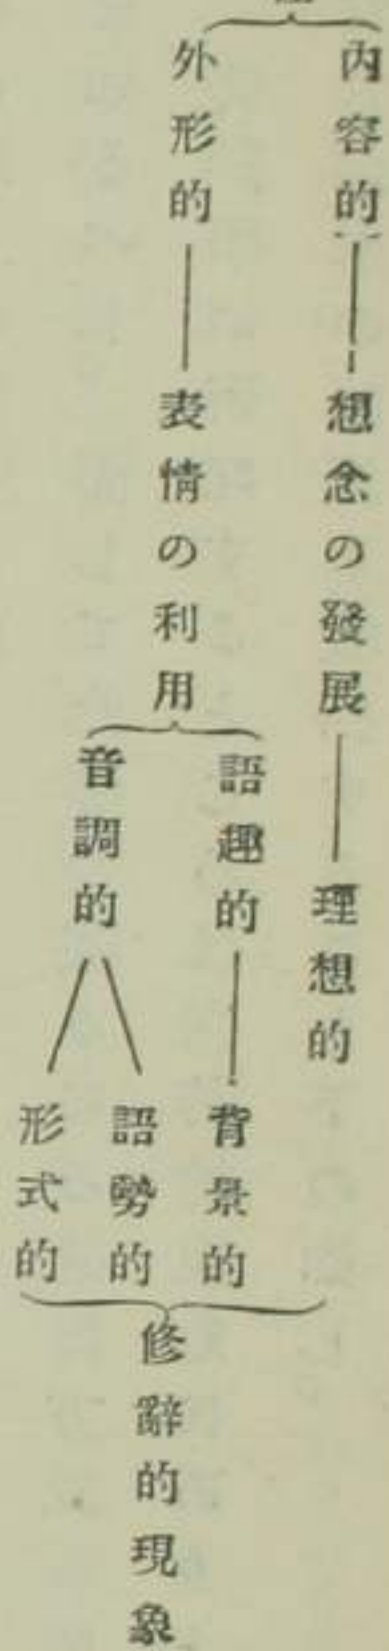 内容的
想念の發展
理想的
外形的
表情の利用
語趣的
背景的
音調的
語勢的
形式的
修辭的現象